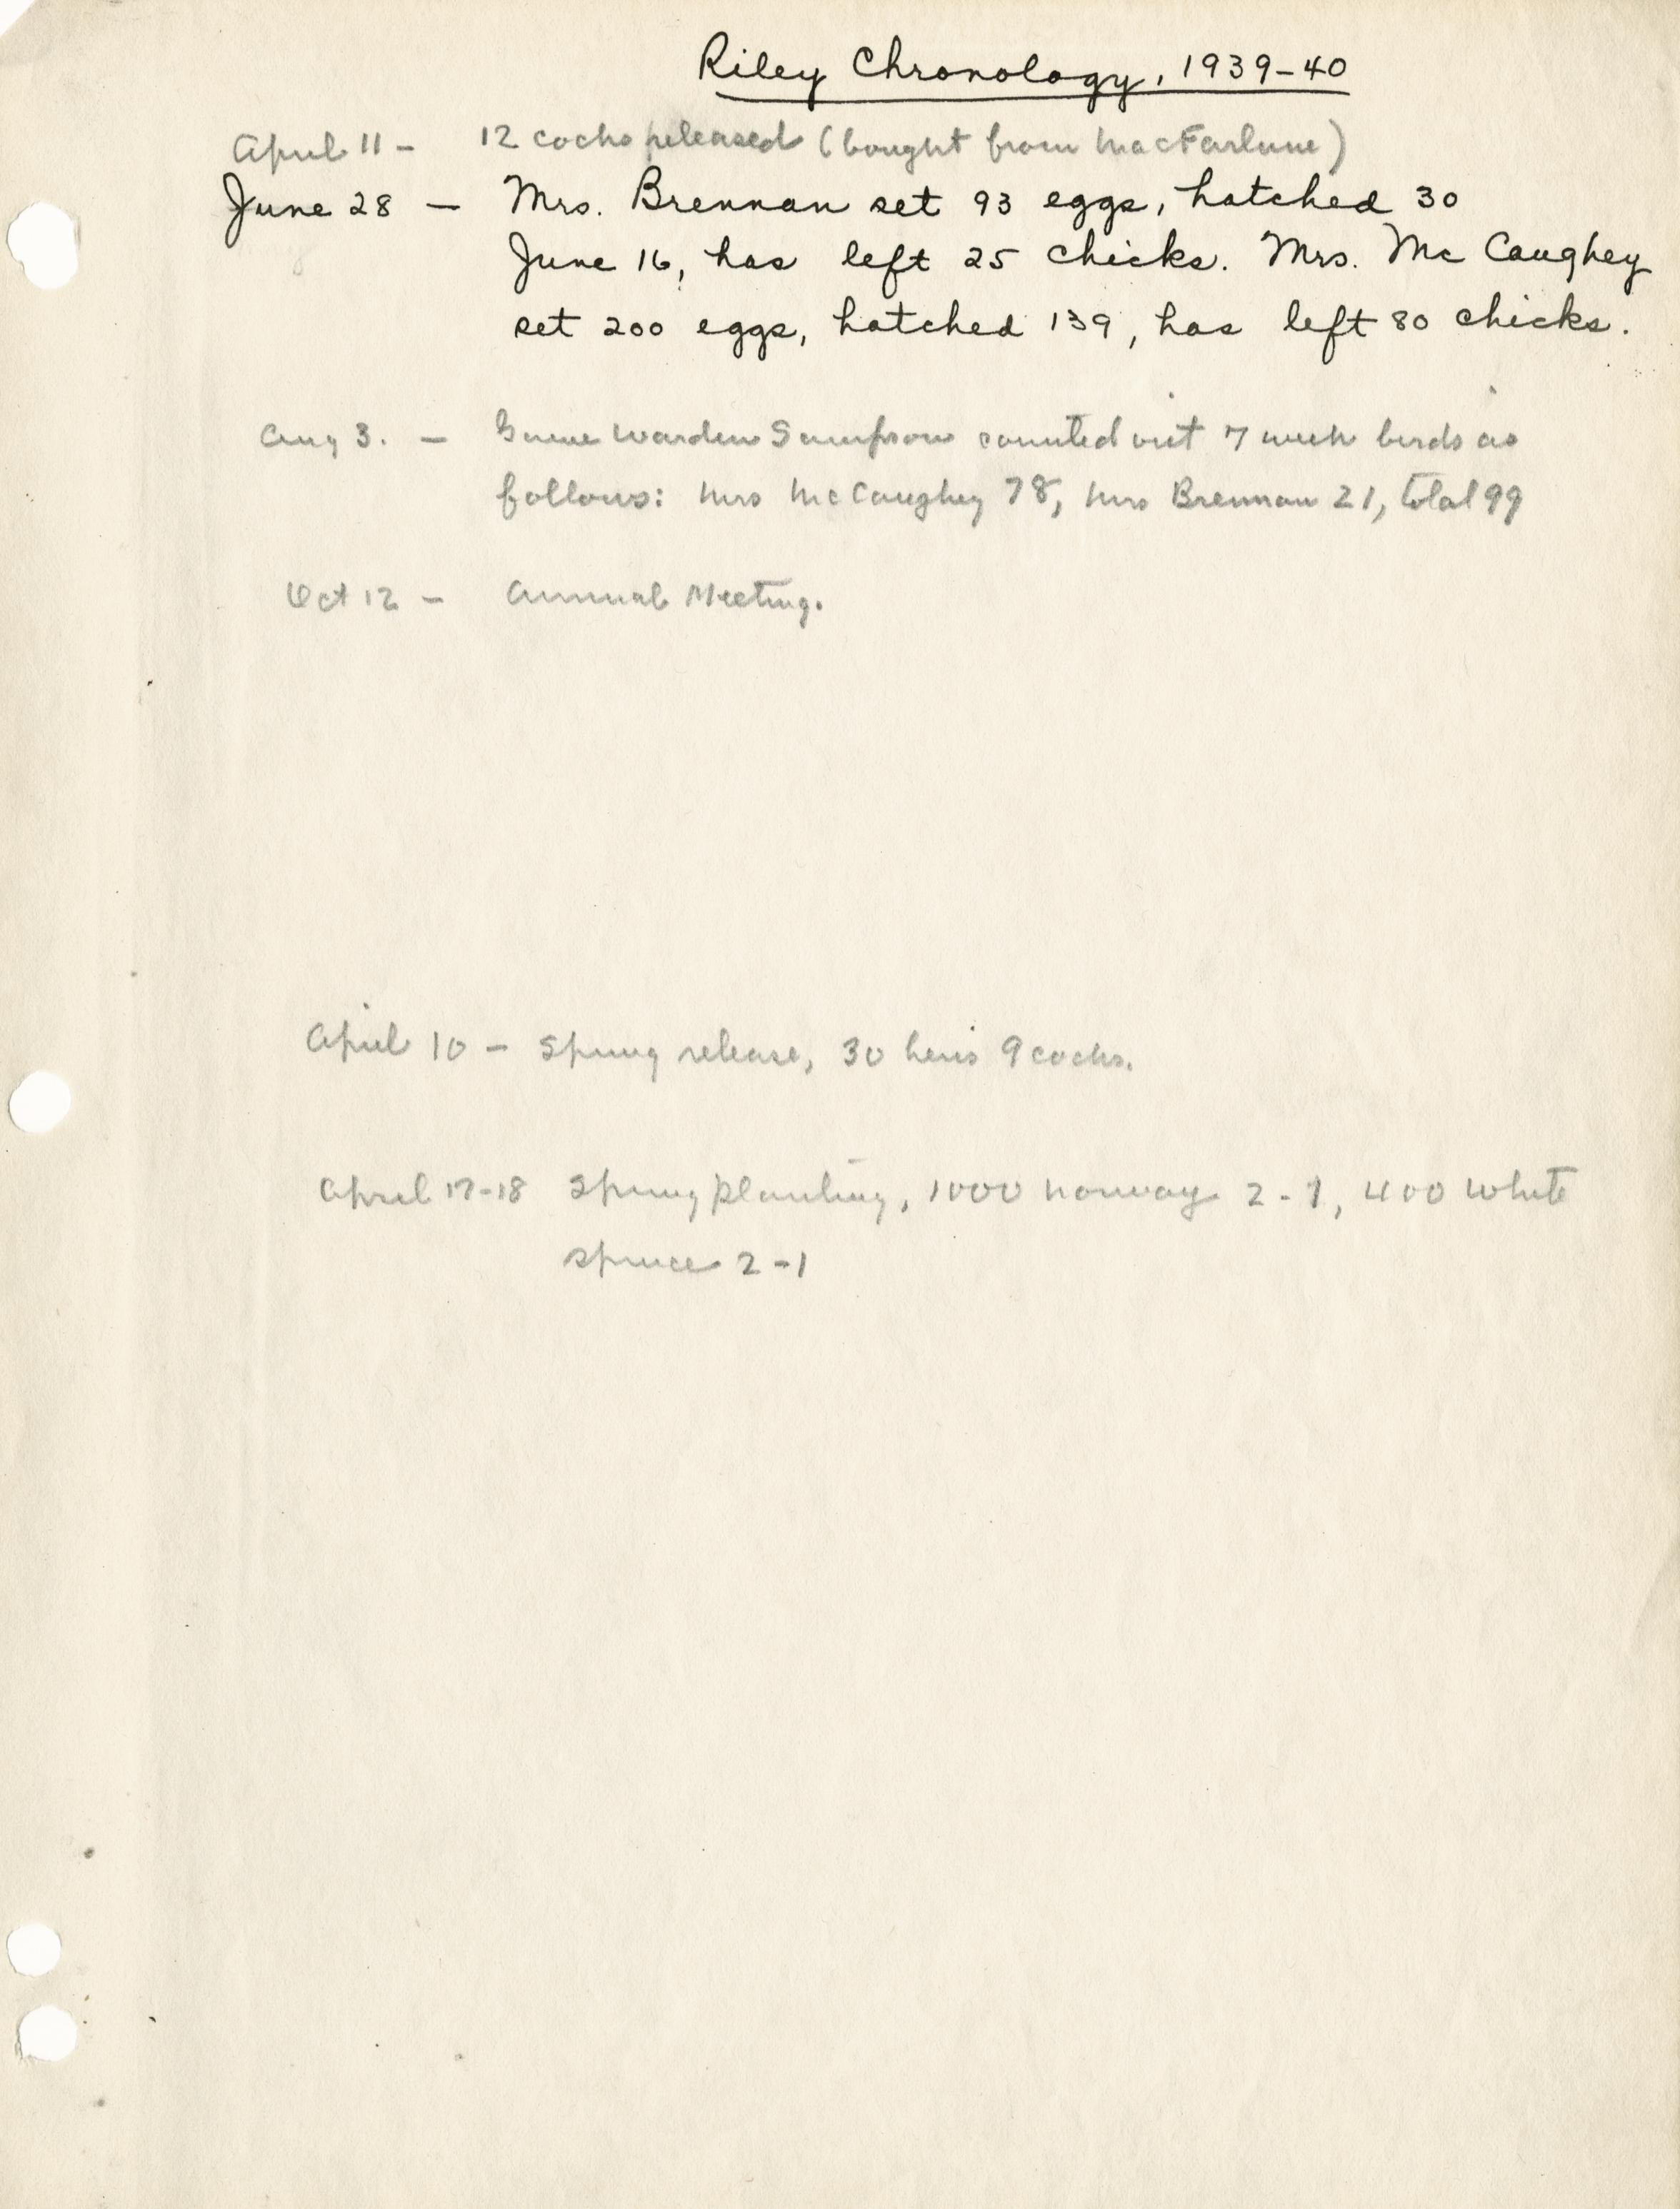 Riley Chronology, 1939-40
April 11 - 12 cocks released (bought from MacFarlane)
June 28 - Mrs. Brennan set 93 eggs, hatched 30
June 16, has left 25 chicks. Mrs. Mc Caughey
set 200 eggs, hatched 139, has left 80 chicks.
Aug 3. - Game Warden Sampson counted out 7 week birds as
follows: Mrs McCaughey 78, Mrs Brennan 21, total 99
Oct 12 - Annual Meeting.
April 10 - Spring release, 30 hens 9 cocks.
April 17-18 Spring planting, 1000 Norway 2-1, 400 White
spruce 2-1